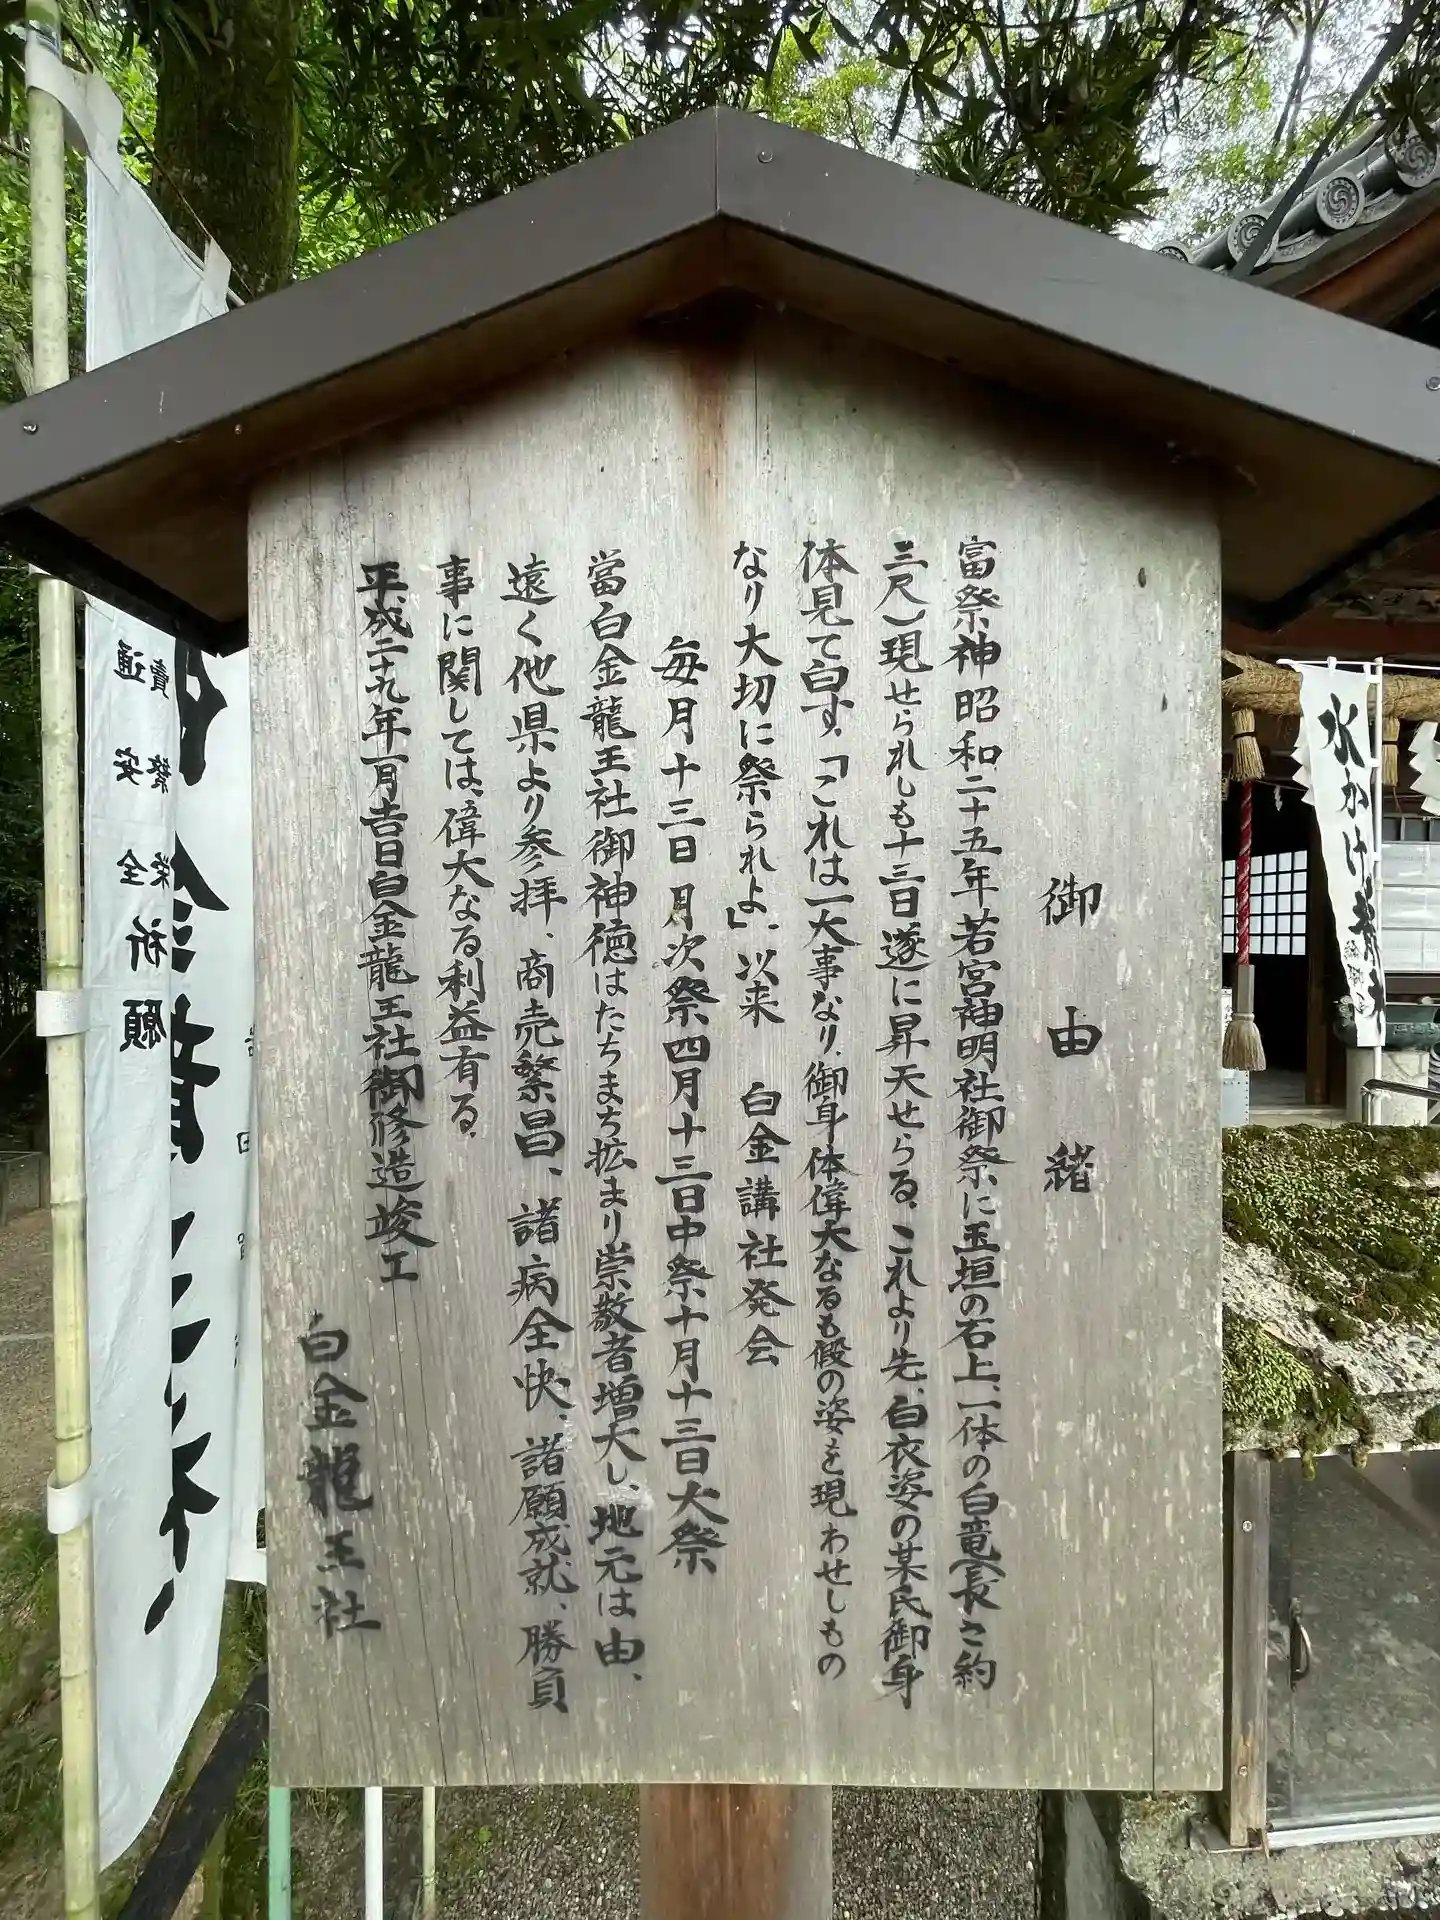 御由緒
當祭神昭和二十五年若宮神明社御祭に玉垣の石上、一体の白竜(長さ約
三尺)現せられしも十三日遂に昇天せらる。これより先、白衣姿の某氏御身
体見て白す。「これは一大事なり、御身体偉大なるも假の姿を現わせしもの
なり大切に祭られよ」。以来 白金講社発会
毎月十三日月次祭四月十三日中祭十月十三日大祭
當白金龍王社御神徳はたちまち拡まり崇敬者増大し、地元は由、
遠く他県より参拝、商売繁昌、諸病全快、諸願成就、勝負
事に関しては、偉大なる利益有る。
平成二十九年一月吉日白金龍王社御修造竣工
白金龍王社
水かけ
繁栄
通安全
祈願